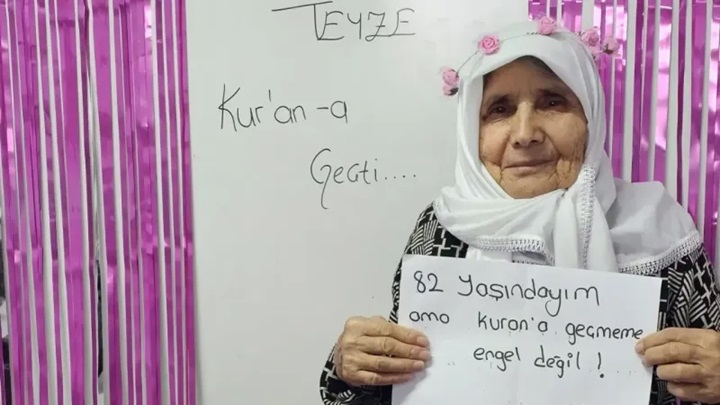 TEYZE
Kur'an-a
Geçti....
82 Yaşındayım
ama Kuran'a geçmeme
engel değil !